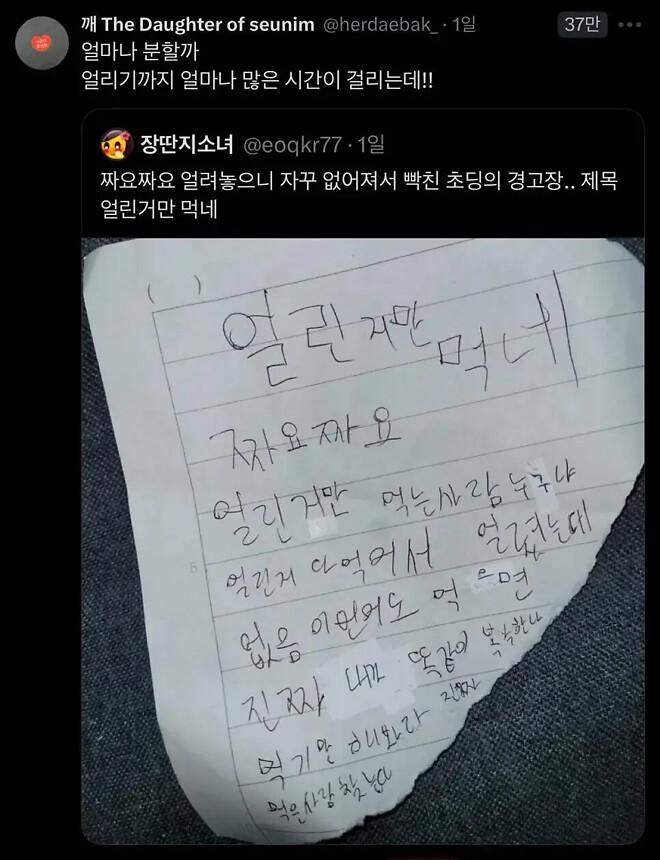 깨 The Daughter of seunim @herdaebak_ · 1일
37만
얼마나 분할까
얼리기까지 얼마나 많은 시간이 걸리는데!!
장딴지소녀 @eoqkr77 · 1일
짜요짜요 얼려놓으니 자꾸 없어져서 빡친 초딩의 경고장.. 제목
얼린거만 먹네
( )
얼린거만 먹네
짜요짜요
얼린거만 먹는사람누구냐
5
얼린거 다먹어서 얼렸는데
없음 이번에도 먹으면
진짜 내가 똑같이 복수한다
먹기만 해봐라 진짜
먹은사람